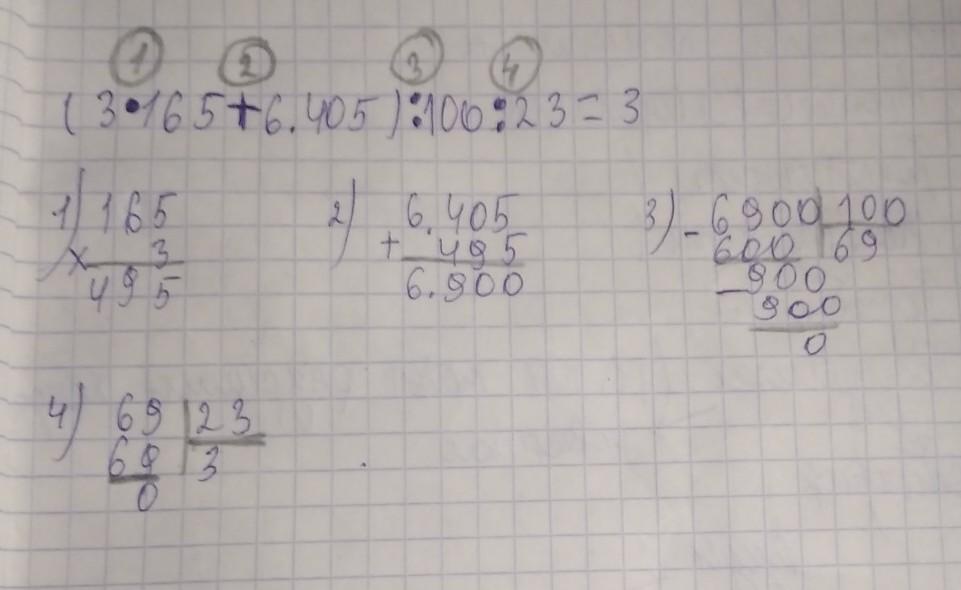 1 2 3 4
(3•165+6.405):100:23=3
1) 165 2) 6.405 3) -6900 100
× 3 + 495 600 69
495 6.900 -900
900
0
4) 69 23
69 3
0